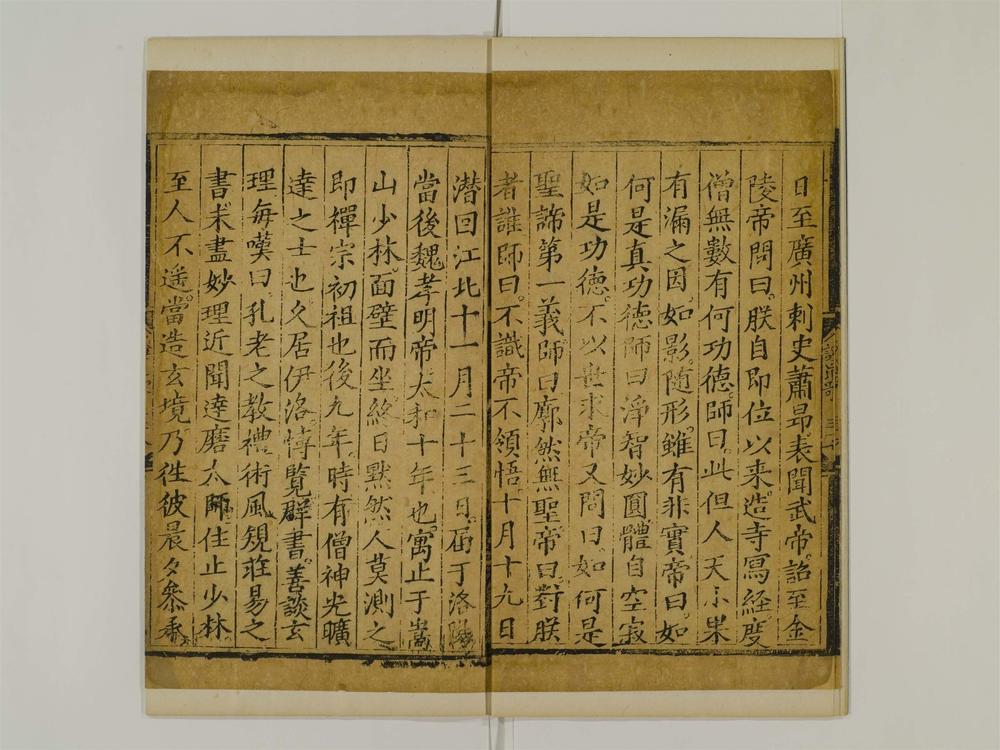 日至廣州刺史蕭昂表聞武帝。詔至金
陵帝問曰。朕自即位以来。造寺寫経。度
僧無數有何功德。師曰。此但人天小果
有漏之因。如影随形。雖有非實帝曰。如
何是真功德師曰淨智妙圓體自空寂
如是功德。不以世求帝又問曰。如何是
聖諦第一義。師曰廓然無聖。帝曰。對朕
者誰師曰。不識帝不領悟。十月十九日
潜回江北十一月二十三日。届于洛陽
當後魏孝明帝。太和十年也。寓止于嵩
山少林。面壁而坐。終日黙然。人莫測之
即禪宗初祖也後九年。時有僧神光曠
達之士也久居伊洛。博覧群書。善談玄
理每嘆曰。孔老之教禮術風規莊易之
書未盡妙理近聞達磨大師住止少林。
至人不遥。當造玄境。乃徃彼晨夕叅承